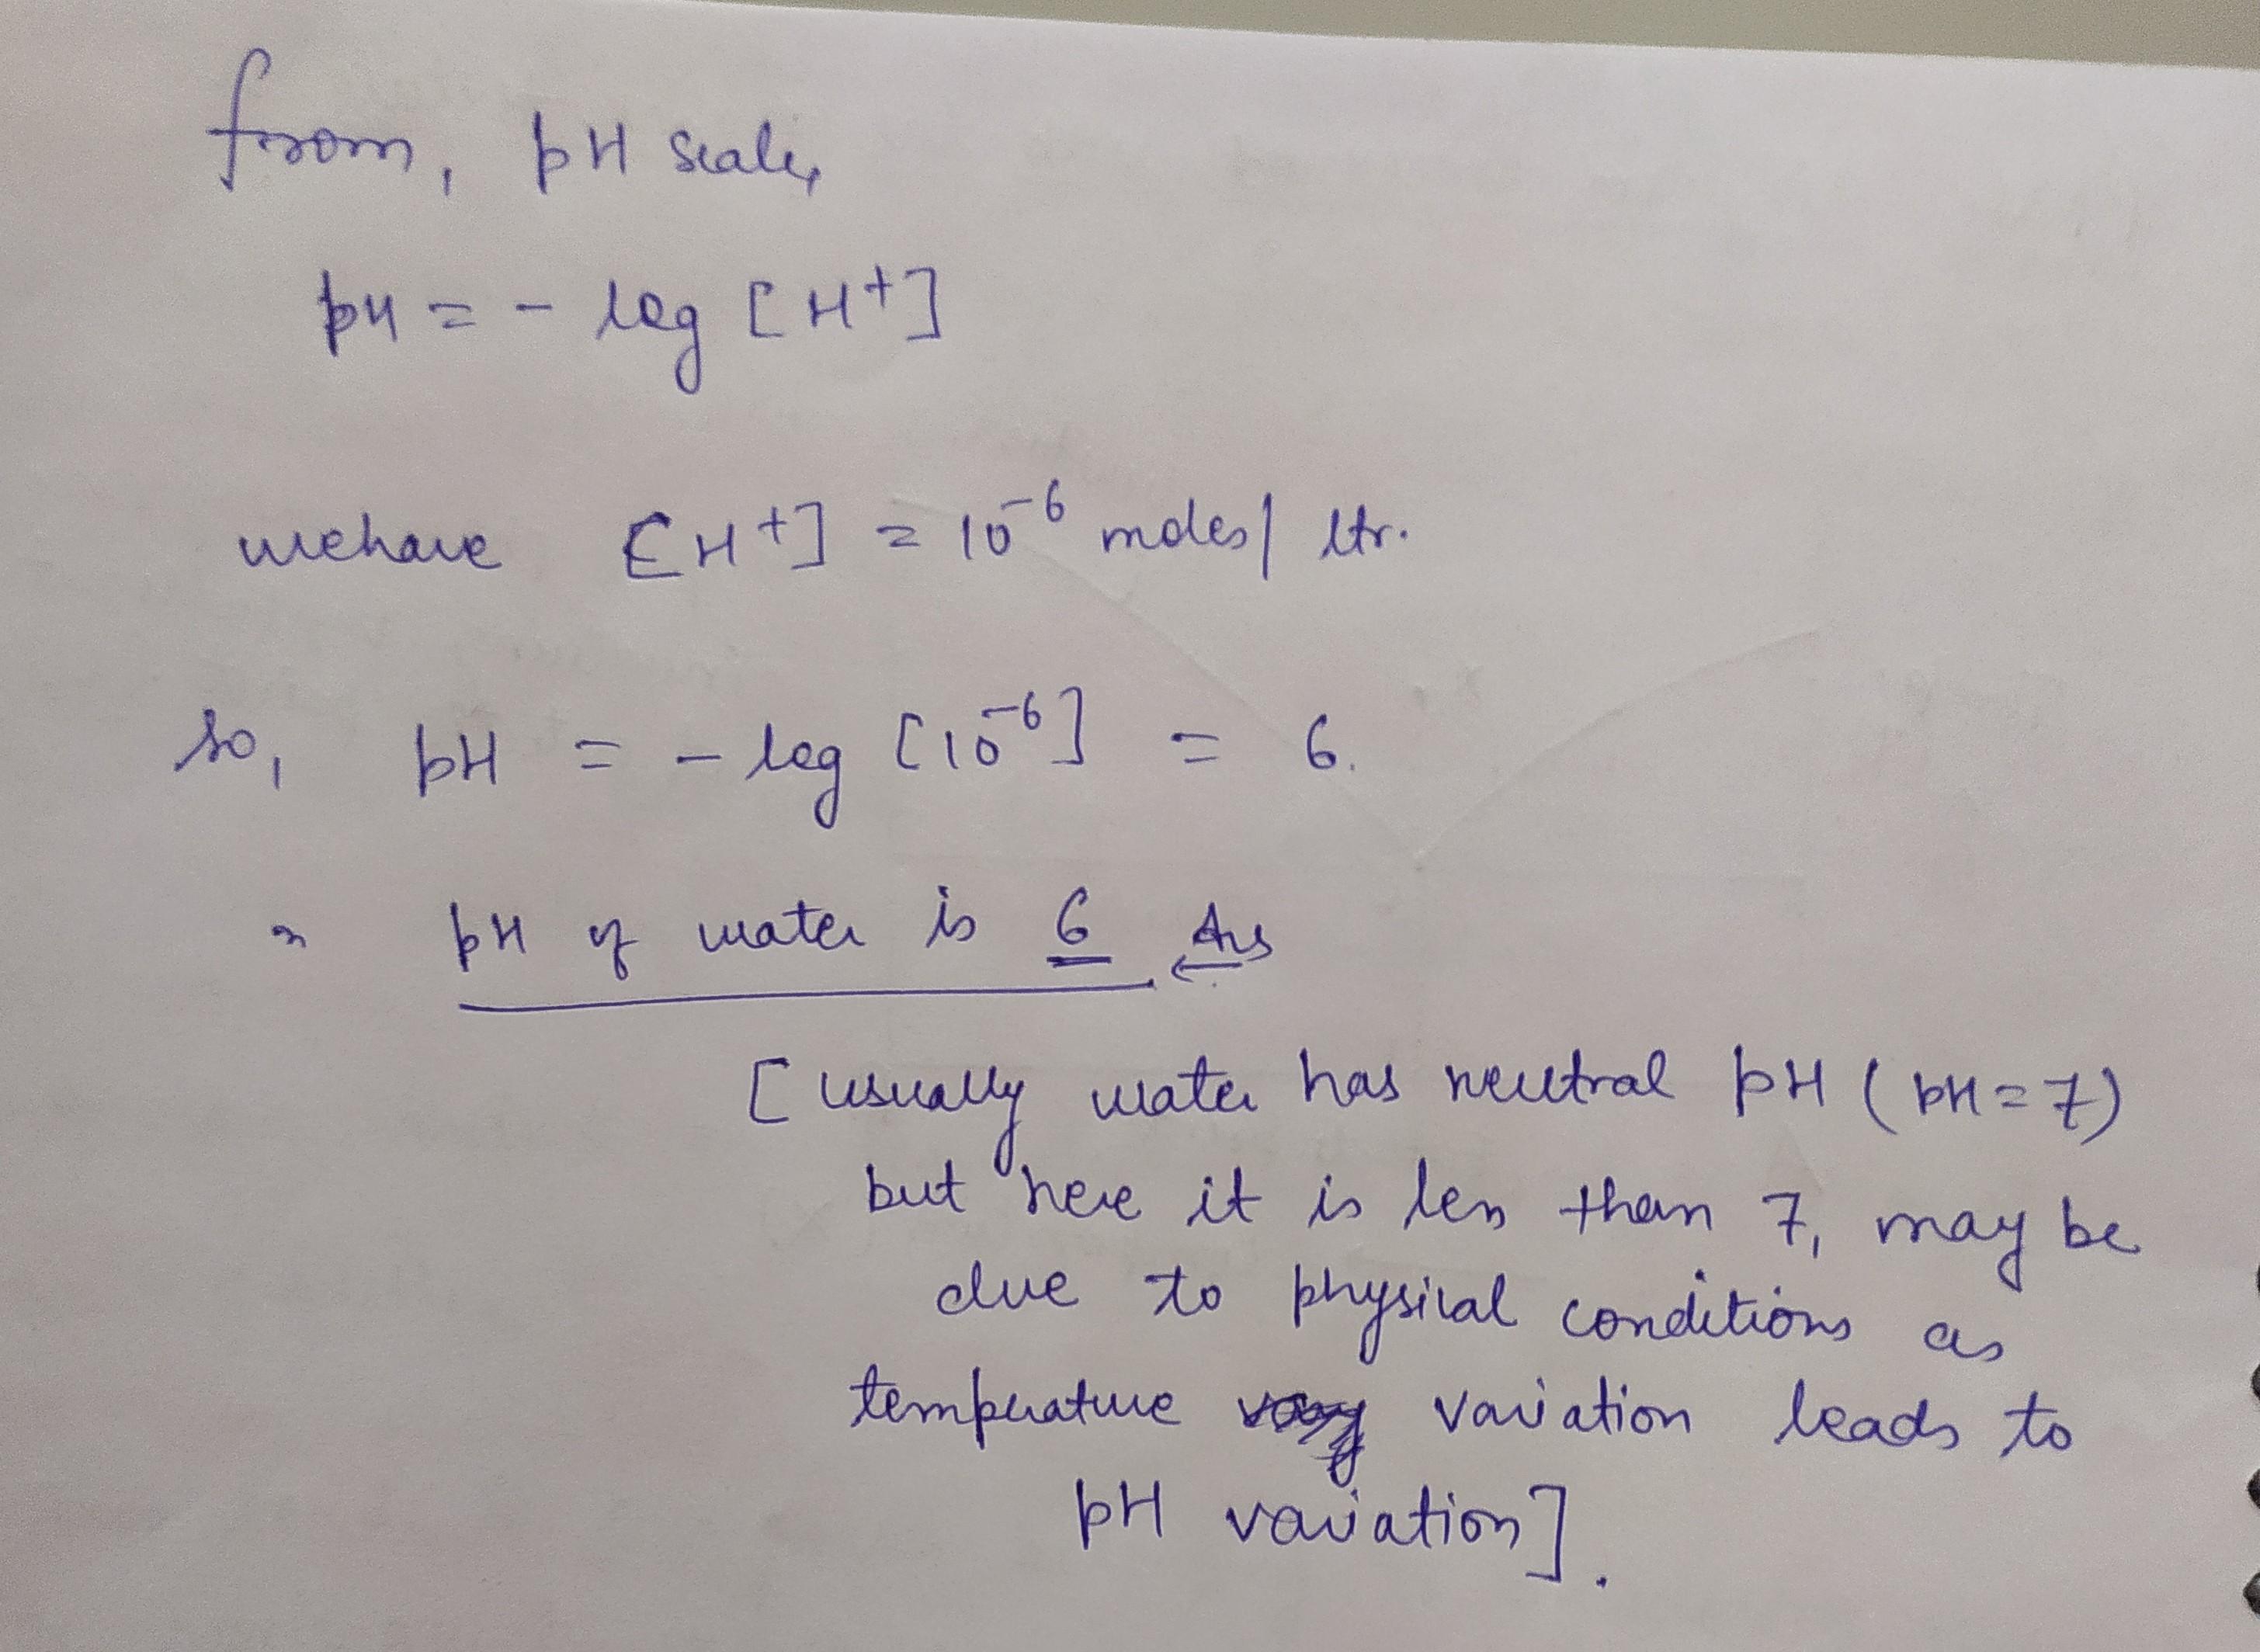 from, pH scale,
pH = - log [H⁺]
we have [H⁺] = 10⁻⁶ moles/ ltr.
so, pH = - log [10⁻⁶] = 6.
pH of water is 6 Ans
[ usually water has neutral pH (pH = 7)
but here it is less than 7, may be
due to physical conditions as
temperature variation leads to
pH variation].